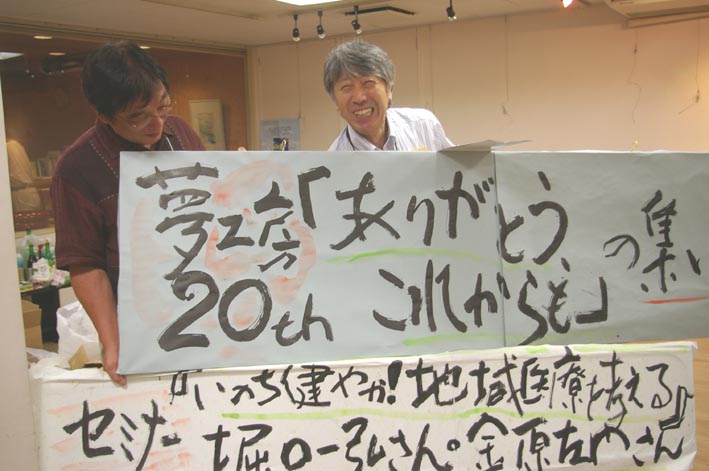 夢工房「ありがとう、
20th これからも」の集い
『いのち健やか!地域医療を考える』
セミナー 堀口一弘さん。金原左門さん